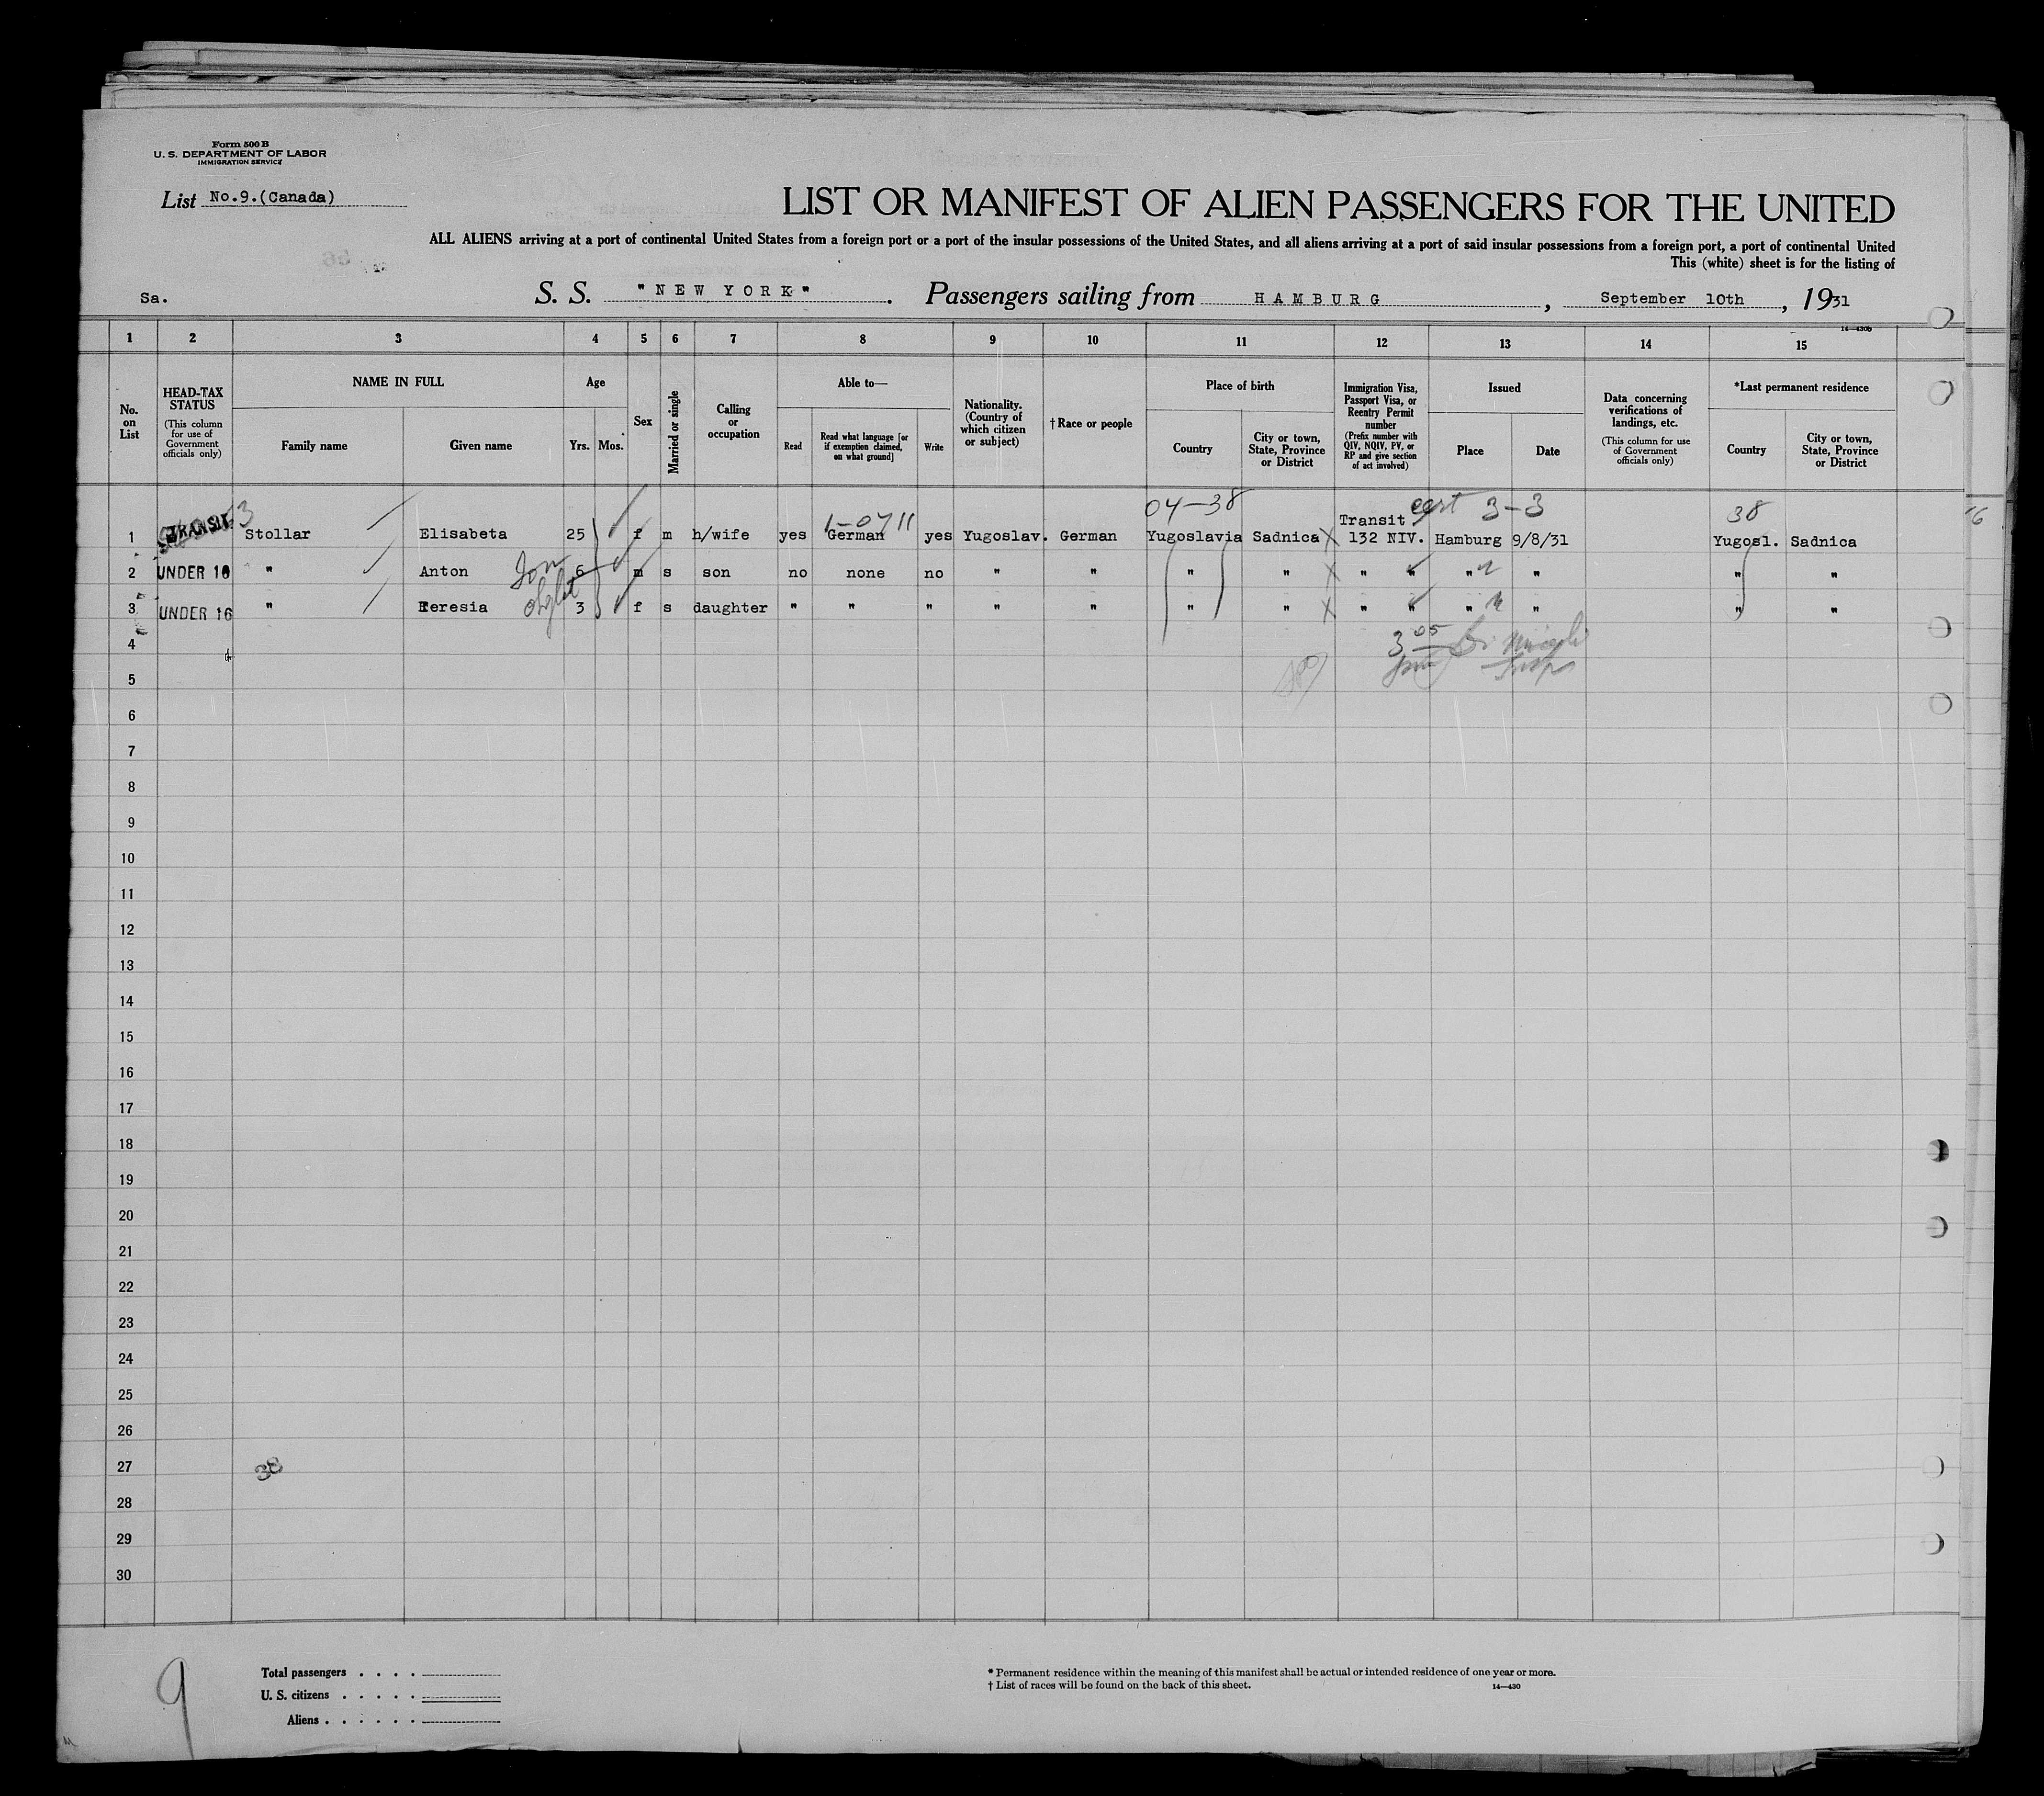 Form 500 B
U. S. DEPARTMENT OF LABOR
IMMIGRATION SERVICE
List No.9.(Canada)
LIST OR MANIFEST OF ALIEN PASSENGERS FOR THE UNITED
ALL ALIENS arriving at a port of continental United States from a foreign port or a port of the insular possessions of the United States, and all aliens arriving at a port of said insular possessions from a foreign port, a port of continental United
This (white) sheet is for the listing of
Sa. S. S. "NEW YORK". Passengers sailing from HAMBURG, September 10th, 1931
14—430b
1 2 3 4 5 6 7 8 9 10 11 12 13 14 15
No. on List
HEAD-TAX STATUS (This column for use of Government officials only)
NAME IN FULL
Family name
Given name
Age
Yrs. Mos.
Sex
Married or single
Calling or occupation
Able to—
Read
Read what language [or if exemption claimed, on what ground]
Write
Nationality. (Country of which citizen or subject)
† Race or people
Place of birth
Country
City or town, State, Province or District
Immigration Visa, Passport Visa, or Reentry Permit number (Prefix number with QIV, NQIV, PV, or RP and give section of act involved)
Issued
Place
Date
Data concerning verifications of landings, etc. (This column for use of Government officials only)
*Last permanent residence
Country
City or town, State, Province or District
04-38 3-3 38
1 TRANSIT Stollar Elisabeta 25 f m h/wife yes German yes Yugoslav. German Yugoslavia Sadnica X Transit 132 NIV. Hamburg 9/8/31 Yugosl. Sadnica
2 UNDER 16 " Anton Son 6 m s son no none no " " " " X " " " " " "
3 UNDER 16 " Teresia 3 f s daughter " " " " " " " X " " " " " "
4
5
6
7
8
9
10
11
12
13
14
15
16
17
18
19
20
21
22
23
24
25
26
27
38
28
29
30
9
Total passengers . . . .
U. S. citizens . . . . .
Aliens . . . . . .
* Permanent residence within the meaning of this manifest shall be actual or intended residence of one year or more.
† List of races will be found on the back of this sheet. 14—430